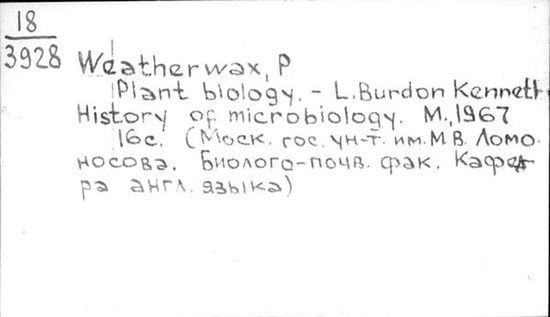 18
3928
Weatherwax, P
Plant biology. - L. Burdon Kenneth
History of microbiology. М., 1967
16с. (Моск. гос. ун-т. им. М В. Ломо-
носова. Биолого-почв. фак. Кафед
ра англ. языка)